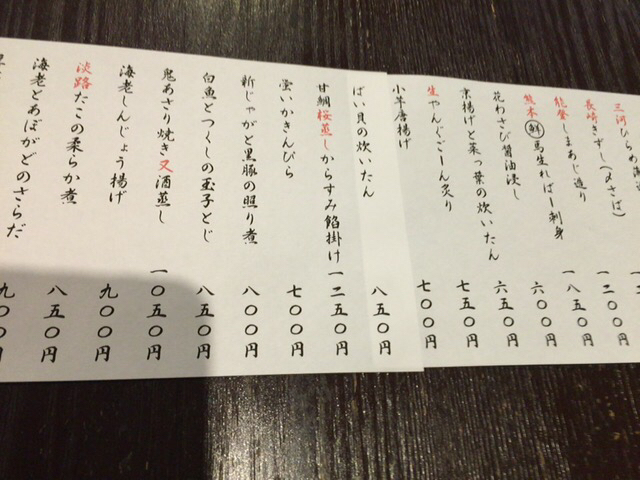 三河ひらめ薄
長崎きずし(〆さば) 一二〇〇円
能登しまあじ造り 一八五〇円
熊本鮮馬生ればー刺身 六〇〇円
花わさび醤油浸し 六五〇円
京揚げと菜っ葉の炊いたん 七五〇円
生やんぐごーん炙り 七〇〇円
小芋唐揚げ
ばい貝の炊いたん 八五〇円
甘鯛桜蒸しからすみ餡掛け 一二五〇円
蛍いかきんぴら 七〇〇円
新じゃがと黒豚の照り煮 八〇〇円
白魚とつくしの玉子とじ 八五〇円
鬼あさり焼き又酒蒸し 一〇五〇円
海老しんじょう揚げ 九〇〇円
淡路たこの柔らか煮 八五〇円
海老とあぼがどのさらだ 九〇〇円